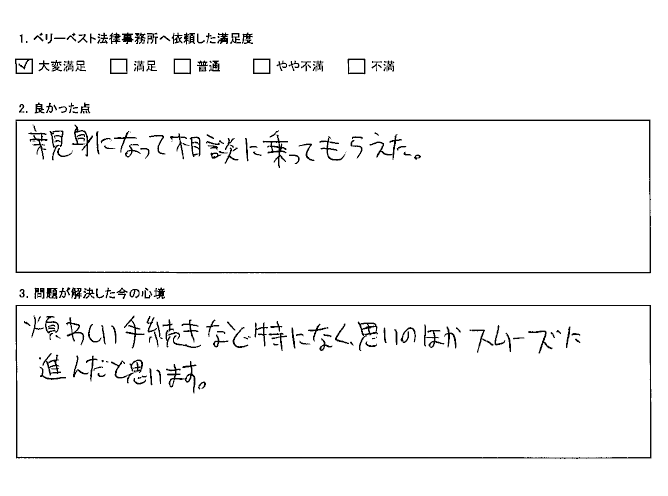 1. ベリーベスト法律事務所へ依頼した満足度
☑ 大変満足 □ 満足 □ 普通 □ やや不満 □ 不満
2. 良かった点
親身になって相談に乗ってもらえた。
3. 問題が解決した今の心境
煩わしい手続きなど特になく、思いのほかスムーズに
進んだと思います。